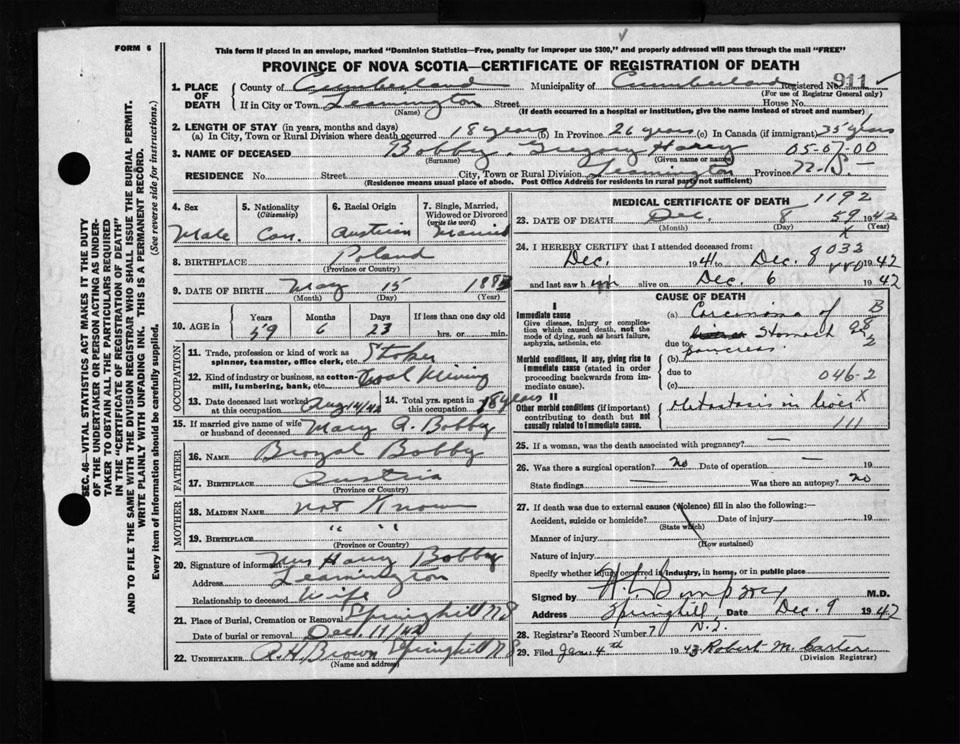 FORM 6
This form if placed in an envelope, marked "Dominion Statistics—Free, penalty for improper use $300," and properly addressed will pass through the mail "FREE"
PROVINCE OF NOVA SCOTIA—CERTIFICATE OF REGISTRATION OF DEATH
1. PLACE OF DEATH
County of Cumberland Municipality of Cumberland Registered No. 911
(For use of Registrar General only)
If in City or Town Leamington Street House No.
(Name) (If death occurred in a hospital or institution, give the name instead of street and number)
2. LENGTH OF STAY (in years, months and days)
(a) In City, Town or Rural Division where death occurred 18 years (b) In Province 26 years (c) In Canada (if immigrant) 35 years
3. NAME OF DECEASED Bobby, Gregory Harry 05-07-00
(Surname) (Given name or names)
RESIDENCE No. Street City, Town or Rural Division Leamington Province N.S.
(Residence means usual place of abode. Post Office Address for residents in rural parts not sufficient)
4. Sex Male
5. Nationality (Citizenship) Can.
6. Racial Origin Austrian
7. Single, Married, Widowed or Divorced (write the word) Married
8. BIRTHPLACE Poland
(Province or Country)
9. DATE OF BIRTH May 15 1883
(Month) (Day) (Year)
10. AGE in Years Months Days If less than one day old
59 6 23 hrs. or min.
OCCUPATION
11. Trade, profession or kind of work as spinner, teamster, office clerk, etc. Stoker
12. Kind of industry or business, as cotton-mill, lumbering, bank, etc. Coal Mining
13. Date deceased last worked at this occupation Aug 14/42
14. Total yrs. spent in this occupation 18 years
15. If married give name of wife or husband of deceased Mary A. Bobby
FATHER
16. NAME Bobby
17. BIRTHPLACE Austria
(Province or Country)
MOTHER
18. MAIDEN NAME not Known
19. BIRTHPLACE " " "
(Province or Country)
20. Signature of informant Mrs Harry Bobby
Address Leamington
Relationship to deceased Wife
21. Place of Burial, Cremation or Removal Springhill NS
Date of burial or removal Dec. 11/42
22. UNDERTAKER A.H. Brown Springhill NS
(Name and address)
MEDICAL CERTIFICATE OF DEATH 1192
23. DATE OF DEATH Dec. 8 59 1942
(Month) (Day) (Year)
24. I HEREBY CERTIFY that I attended deceased from:
Dec. 1941 to Dec. 8 1942
and last saw him alive on Dec 6 1942
CAUSE OF DEATH
I
Immediate cause
Give disease, injury or complication which caused death, not the mode of dying, such as heart failure, asphyxia, asthenia, etc.
(a) Carcinoma of
Stomach
due to
Morbid conditions, if any, giving rise to immediate cause (stated in order proceeding backwards from immediate cause).
(b) pancreas
due to
(c) 046-2
II
Other morbid conditions (if important) contributing to death but not causally related to immediate cause.
Metastasis in liver X
111
25. If a woman, was the death associated with pregnancy? —
26. Was there a surgical operation? no Date of operation — 19
State findings — Was there an autopsy? no
27. If death was due to external causes (violence) fill in also the following:—
Accident, suicide or homicide? Date of injury 19
(State which)
Manner of injury
(How sustained)
Nature of injury
Specify whether injury occurred in industry, in home, or in public place
Signed by M.D.
Address Springhill N.S. Date Dec. 9 1942
28. Registrar's Record Number 7
29. Filed Jan. 4th 1943 Robert M. Carter
(Division Registrar)
SEC. 46—VITAL STATISTICS ACT MAKES IT THE DUTY
OF THE UNDERTAKER OR PERSON ACTING AS UNDER-
TAKER TO OBTAIN ALL THE PARTICULARS REQUIRED
IN THE "CERTIFICATE OF REGISTRATION OF DEATH"
AND TO FILE THE SAME WITH THE DIVISION REGISTRAR WHO SHALL ISSUE THE BURIAL PERMIT.
WRITE PLAINLY WITH UNFADING INK. THIS IS A PERMANENT RECORD.
Every item of information should be carefully supplied. (See reverse side for instructions.)